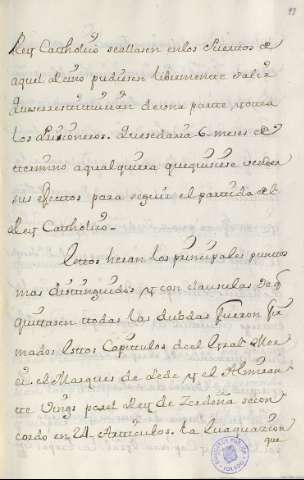 Rey Catthólico se allasen en los Puertos de
aquel Reino pudiesen libremente salir
Que se restituirían de una parte y otra
los Prisioneros. Que se daría 6 meses de
ttermino a qualquiera que quisiese vender
sus efectos para seguir el partido del
Rey Catthólico.
Esttos heran los principales punttos
mas distinguidos y con clausulas de q
quittasen ttodas las dudas fueron fir
mados esttos Capitulos de el Gral Mer
ci, el Marques de Lede y el Almiran
tte Vings por el Rey de Zerdeña se con
cordo en 24 Articulos. La evaquazion
que